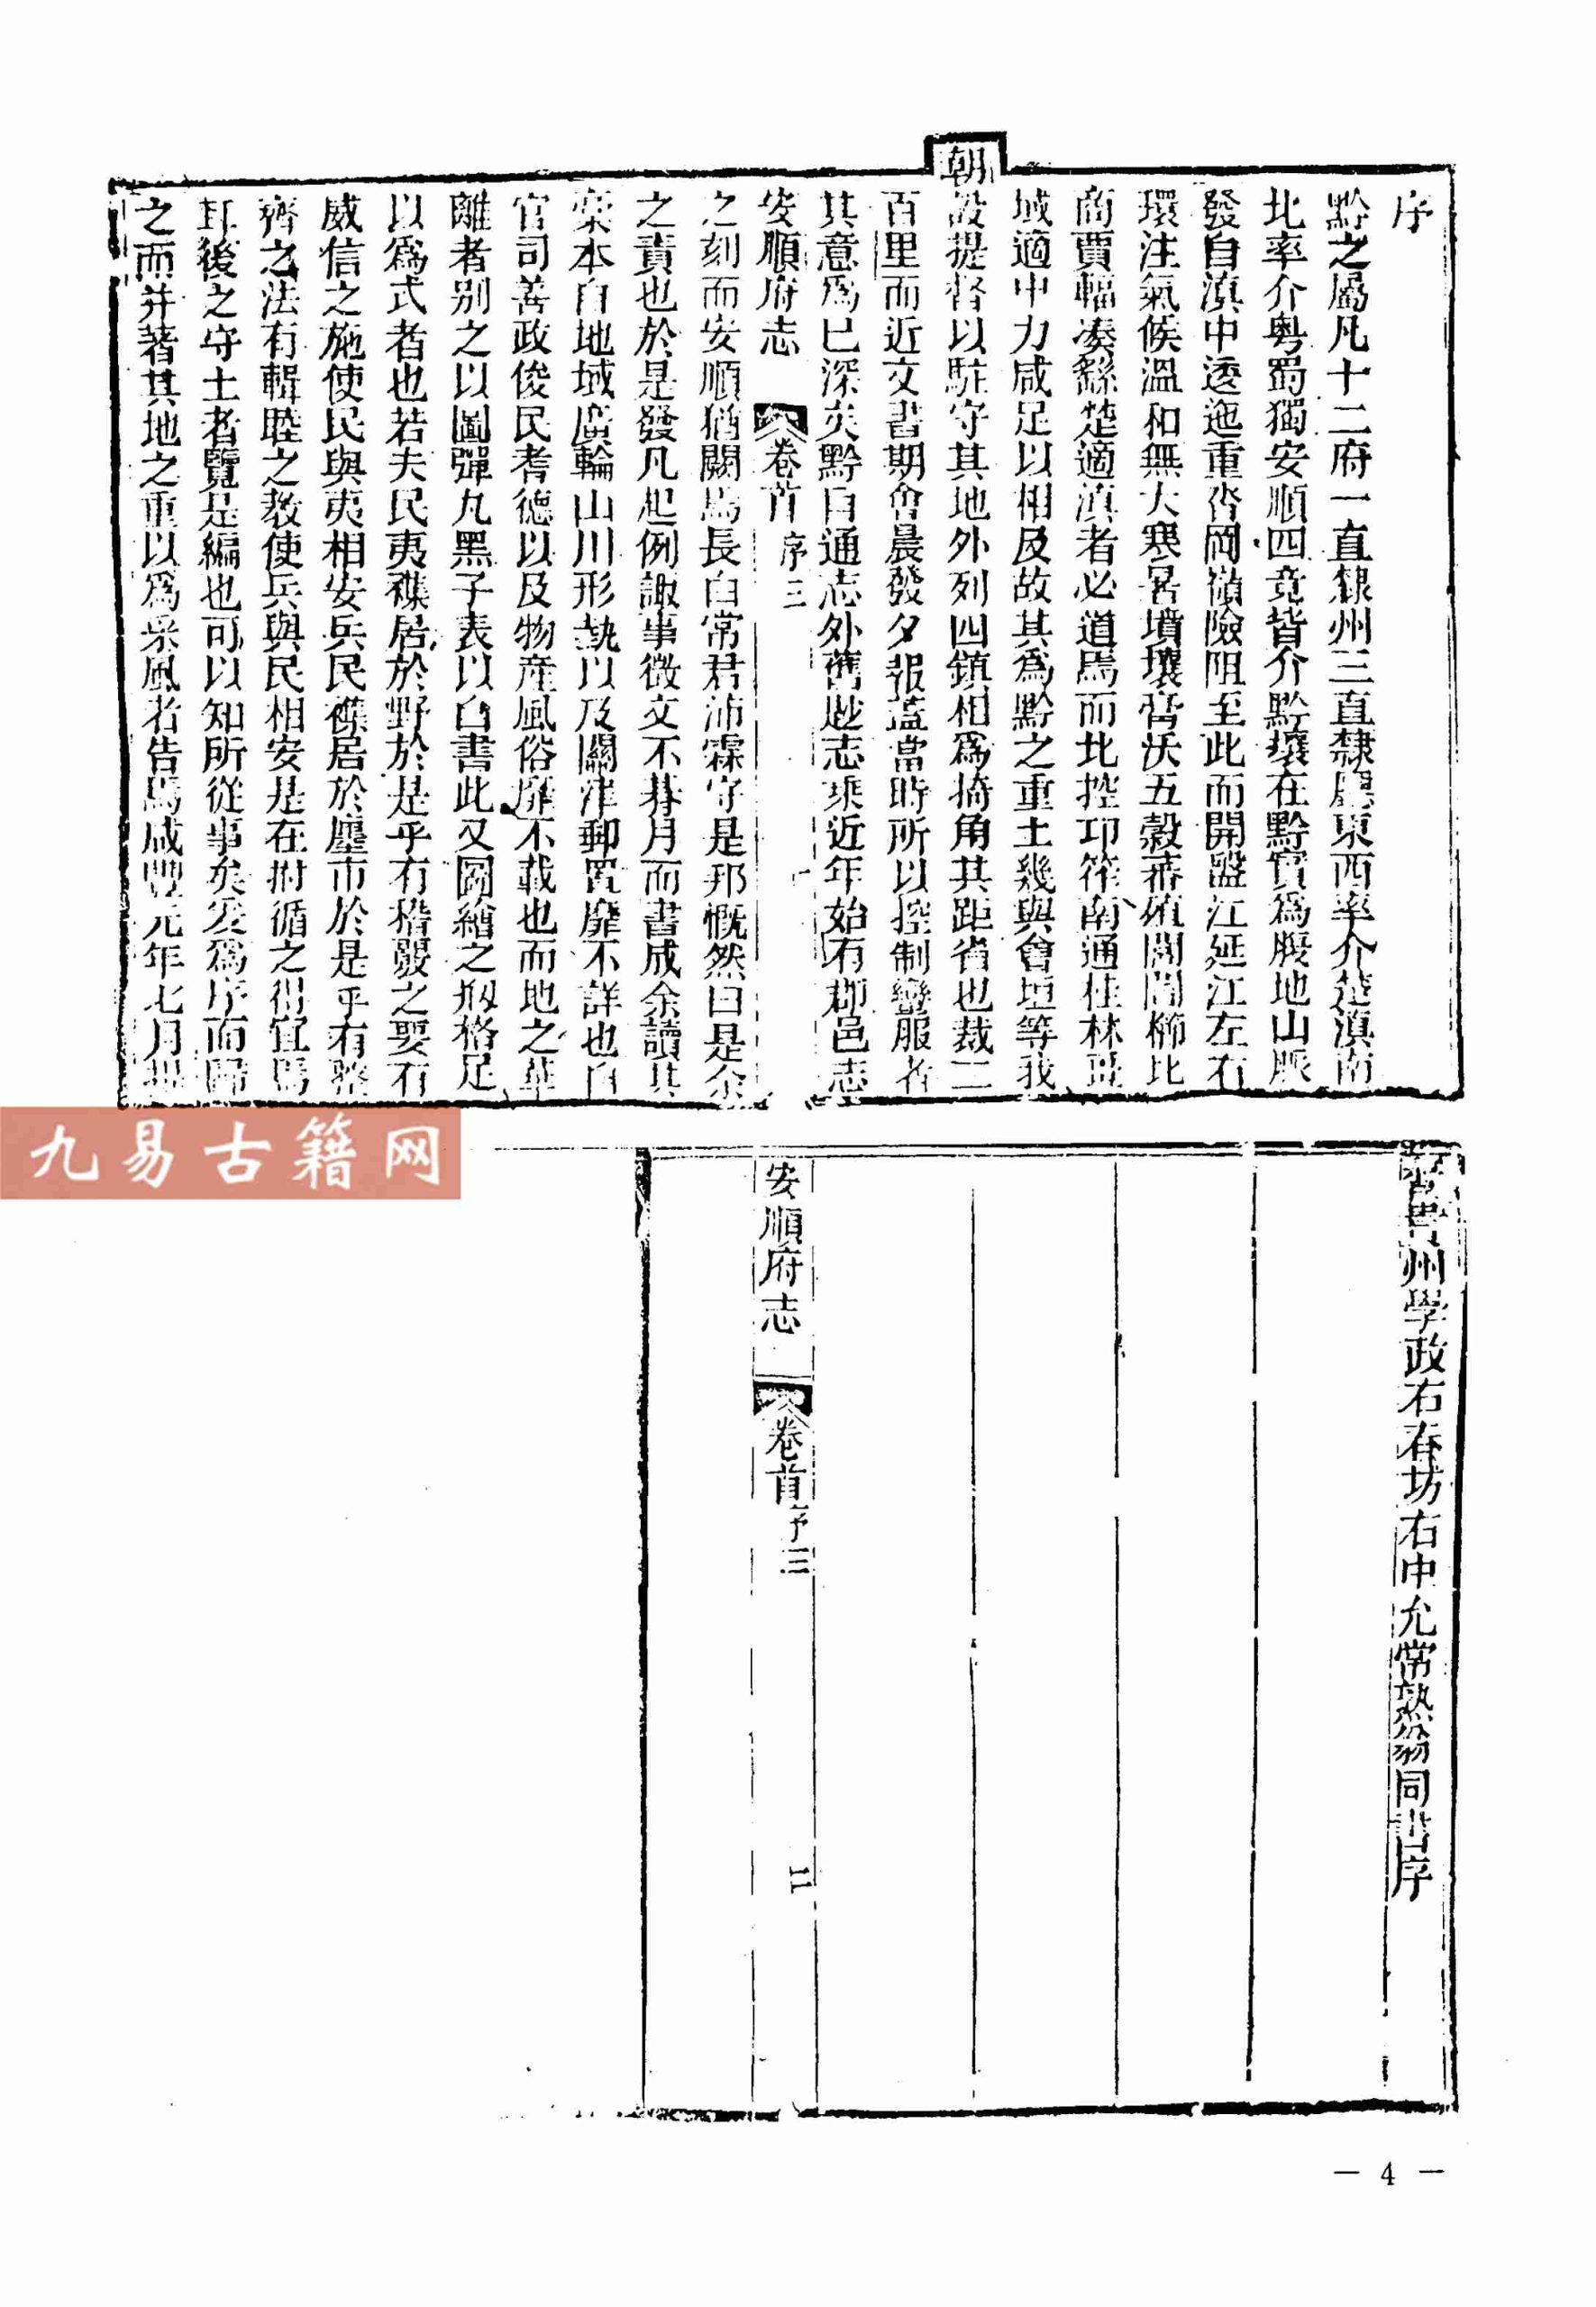 序
黔之屬凡十二府一直隸州三直隸廳東西率介楚滇南
北率介粵蜀獨安順四竟皆介黔壤在黔實爲腹地山脈
發自滇中逶迤重沓岡嶺險阻至此而開盤江延江左右
環注氣候溫和無大寒暑墳壤膏沃五穀蕃殖閭閻櫛比
商賈輻湊繇楚適滇者必道焉而北控卭筰南通桂林疆
域適中力咸足以相及故其爲黔之重土幾與會垣等我
朝設提督以駐守其地外列四鎮相爲掎角其距省也裁二
百里而近文書期會晨發夕報蓋當時所以控制蠻服者
其意爲已深矣黔自通志外舊尟志乘近年始有郡邑志
安順府志 卷首 序三 一
之刻而安順猶闕焉長白常君沛霖守是邦慨然曰是余
之責也於是發凡起例諏事徵文不朞月而書成余讀其
槀本自地域廣輪山川形埶以及關津郵置靡不詳也自
官司善政俊民耆德以及物產風俗靡不載也而地之華
離者别之以圖彈丸黑子表以白書此又圖繪之刱格足
以爲式者也若夫民夷襍居於野於是乎有撘發之要有
威信之施使民與夷相安兵民襍居於廛市於是乎有整
齊之法有輯睦之教使兵與民相安是在拊循之得宜焉
耳後之守土者覽是編也可以知所從事矣爰爲序而歸
之而并著其地之重以爲采風者告焉咸豐元年七月
州學政右春坊右中允常熟翁同書序
安順府志 卷首 序三 二
— 4 —
九易古籍网